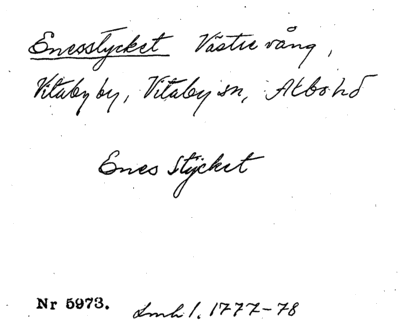 Enesstycket Västre vång,
Vitaby by, Vitaby sn, Albo hd
Enes Stÿcket
Nr 5973. Lmh 1. 1777-78